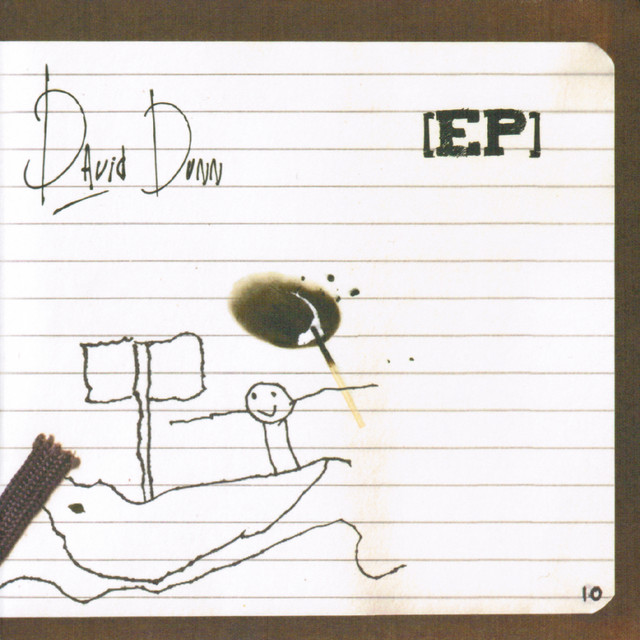 David Dunn
[EP]
10